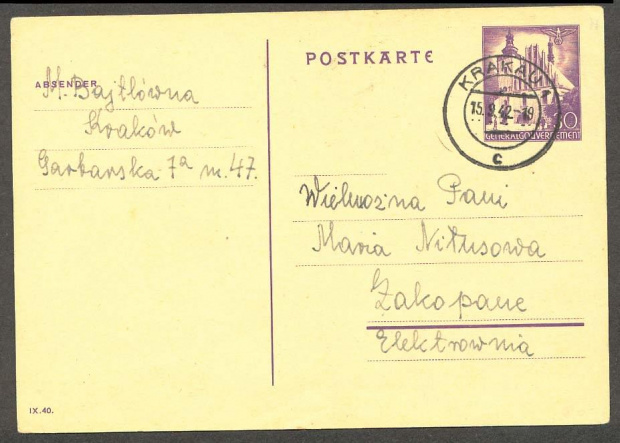 POSTKARTE
ABSENDER
M. Bajtlówna
Kraków
Garbarska 7a m. 47.
KRAKAU 1
15.9.42-19
c
30
GENERALGOUVERNEMENT
Wielmożna Pani
Maria Nitusowa
Zakopane
Elektrownia
IX.40.